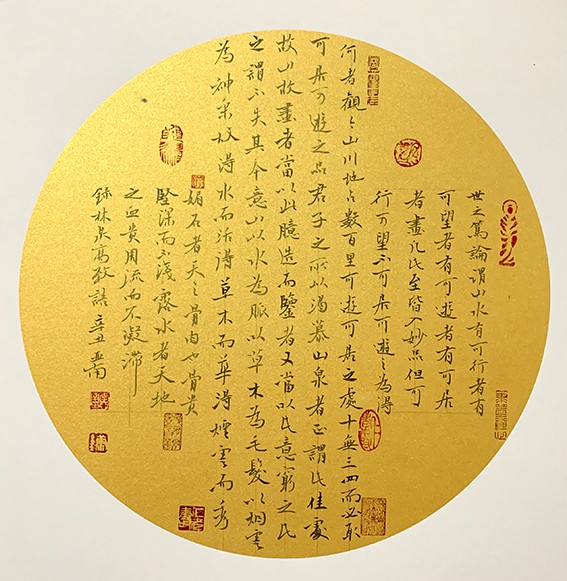 世之篤論謂山水有可行者有
可望者有可遊者有可居
者畫凡此至皆入妙品但可
行可望不可居可遊之為得
何者觀今山川地占數百里可遊可居之處十無三四而必取
可居可遊之品君子之所以渴慕山泉者正謂此佳處
故山故畫者當以此臆造而鑒者又當以此意窮之此
之謂不失其本意山以水為脈以草木為毛髮以烟雲
為神采故得水而活得草木而華得煙雲而秀
媚石者天之骨肉也骨貴
堅深而不淺露水者天地
之血貴周流而不凝滯
錄林泉高致語 辛丑